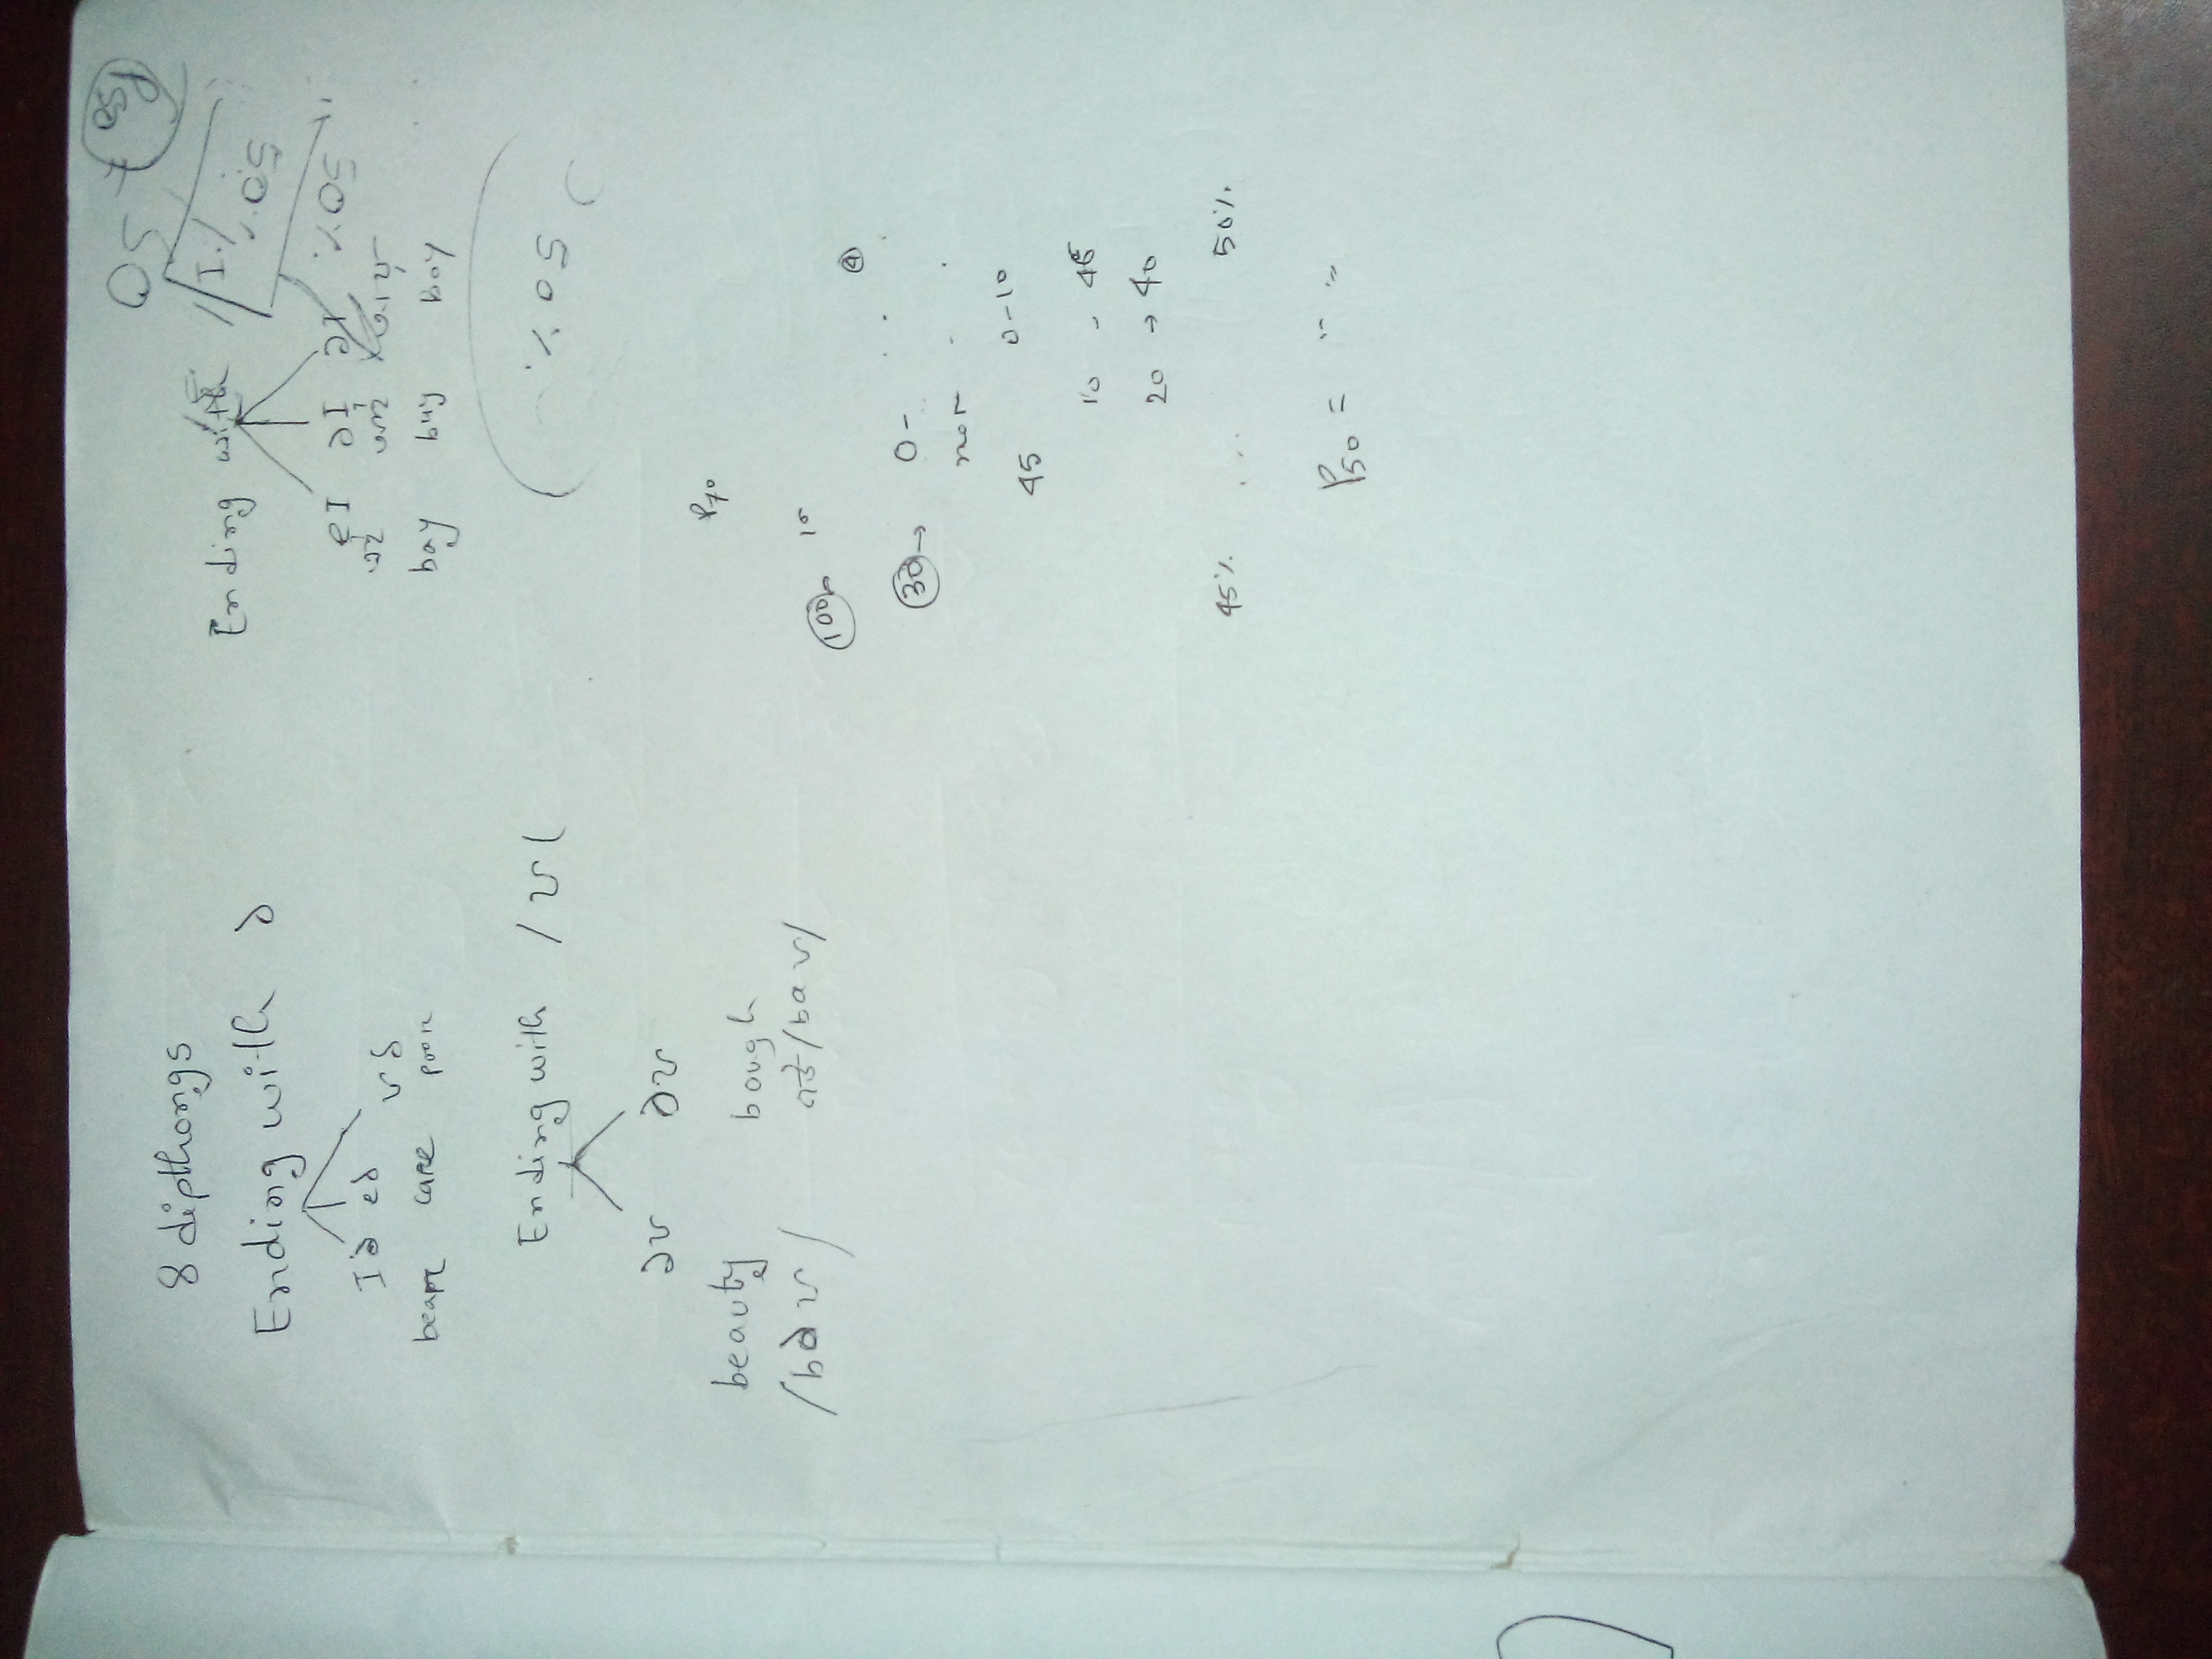 8 dipthongs
Ending with ə
Iə eə ʊə
bear care poor
Ending with /ʊ/
əʊ əʊ
beauty bough
/bəʊ/ বাউ /baʊ/
50
P50
Ending with /I/
50%
eI əI əI
50%
bay buy boy
50%
P70
100 10
30 → 0-
45 0-10
10 - 45
20 → 40
45% ... 50%
P50 = " "